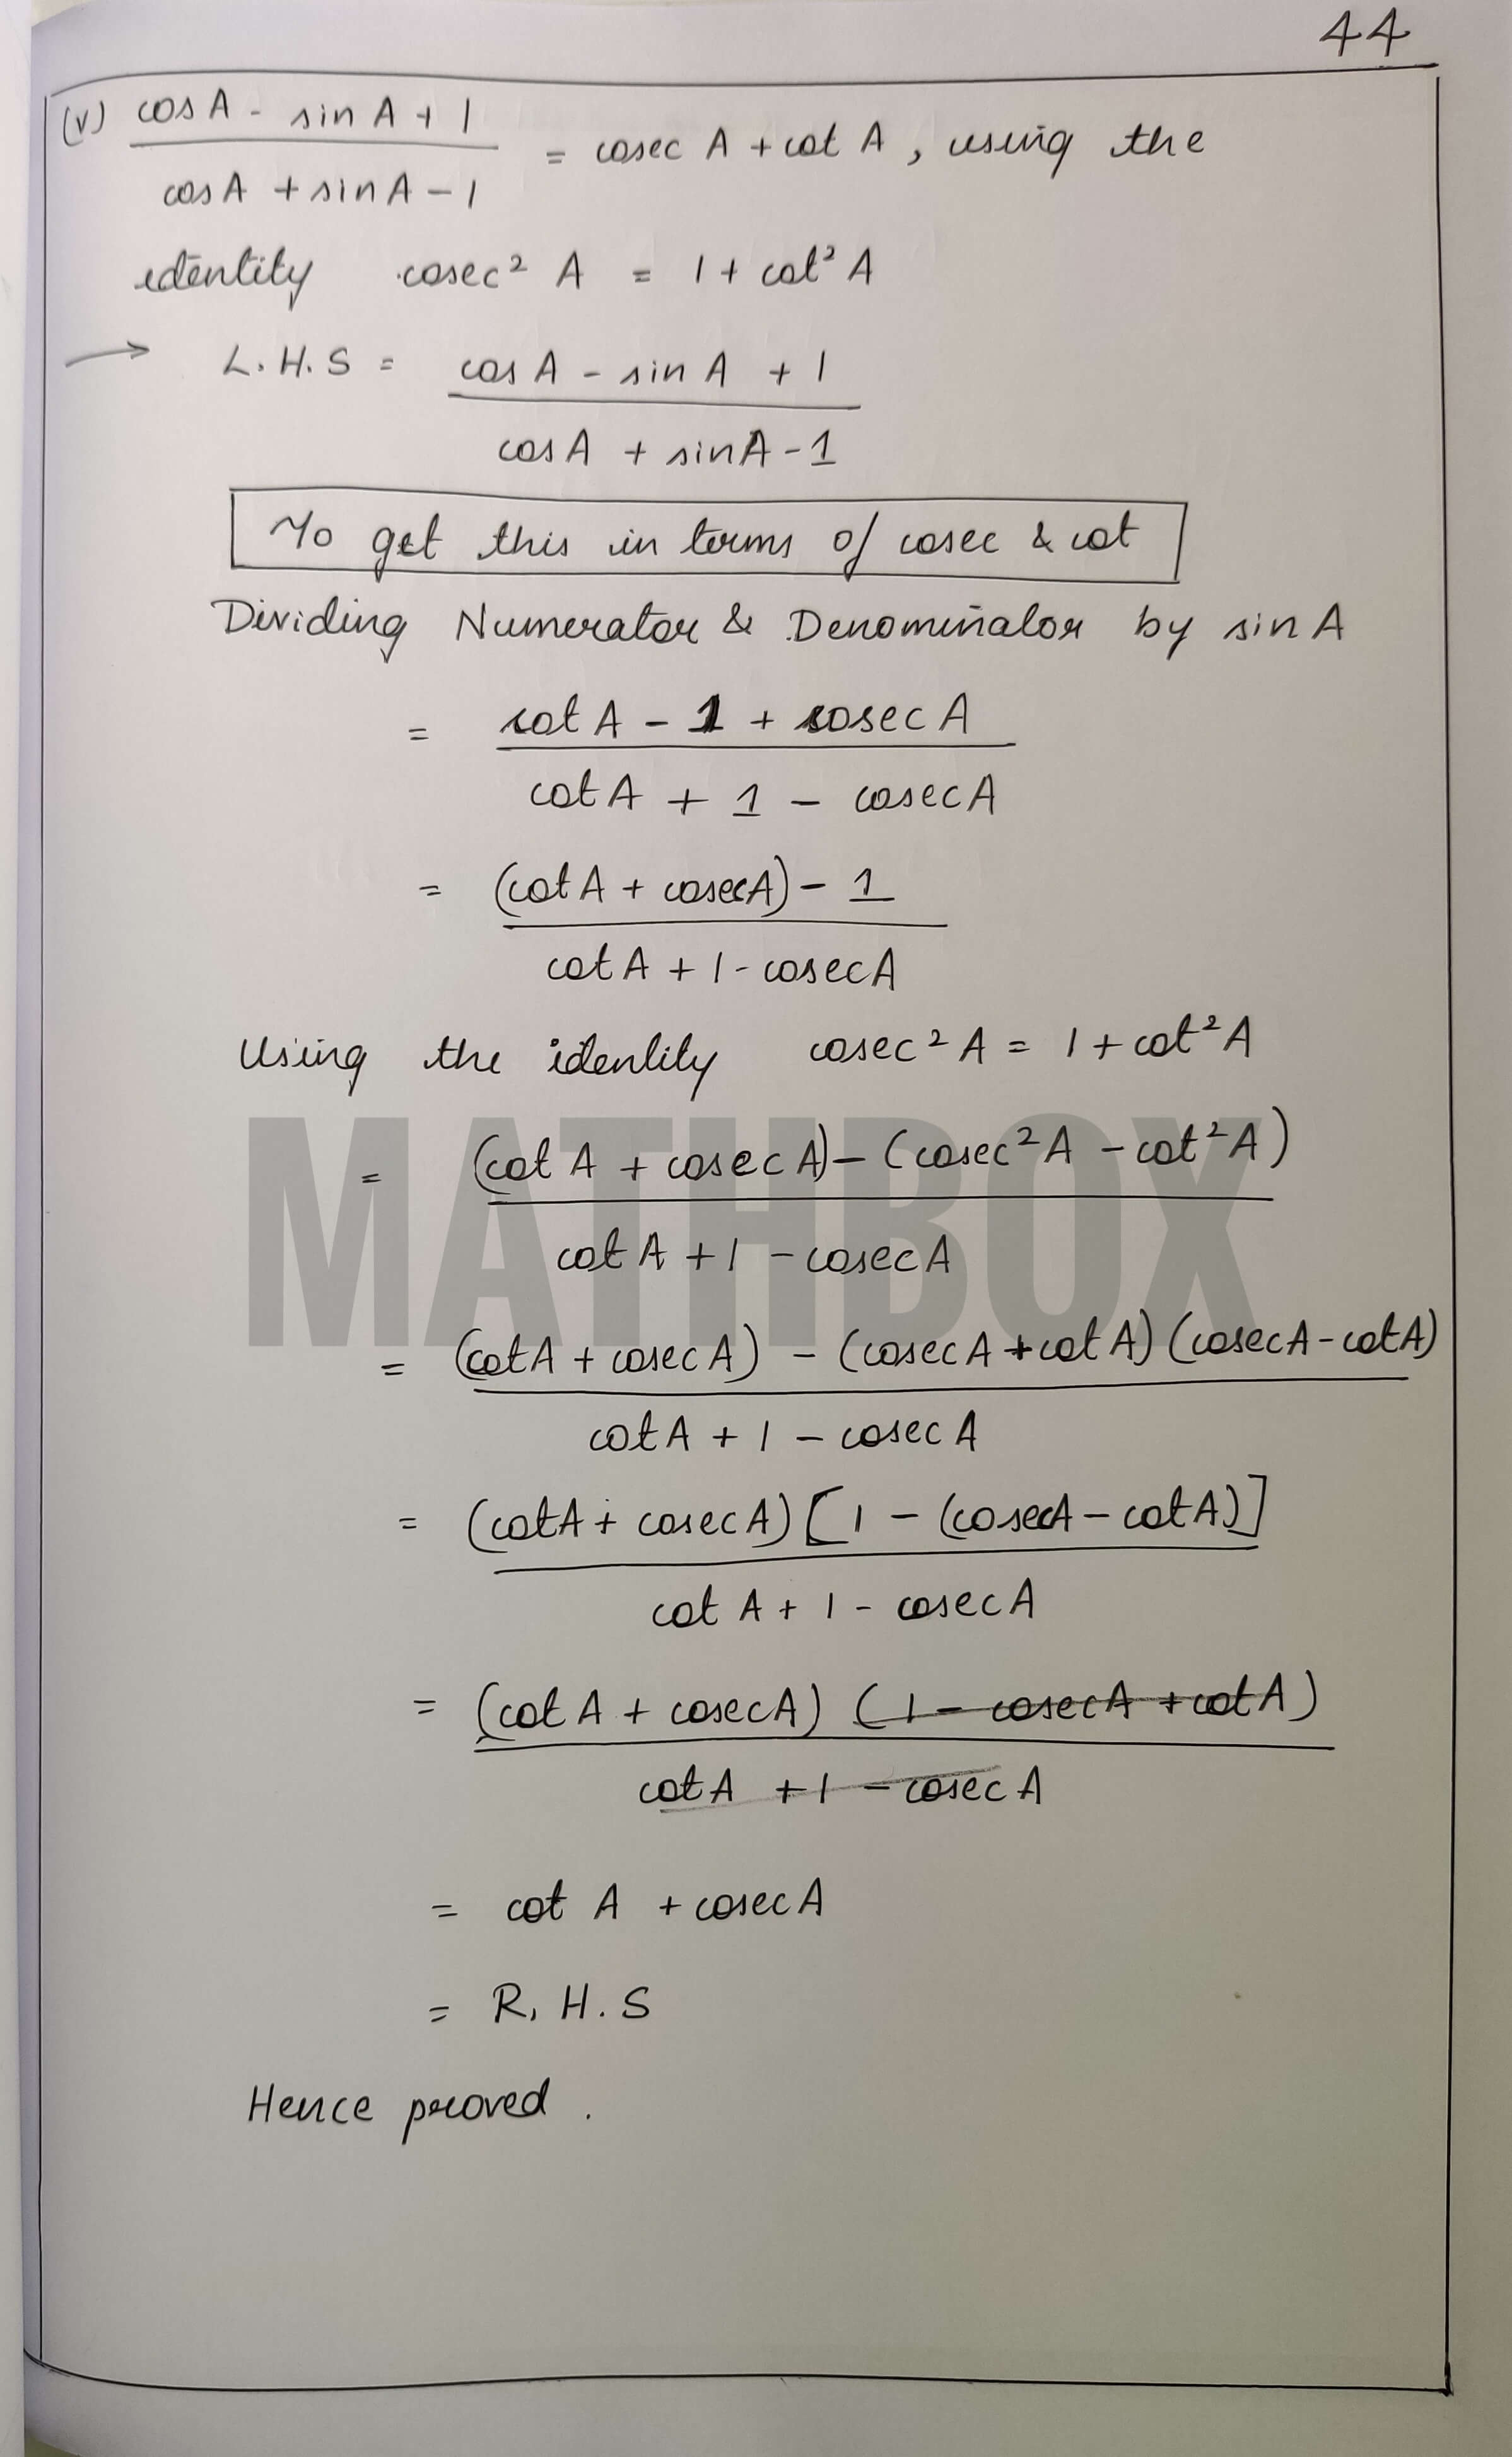 44
(v) cos A - sin A + 1 / cos A + sin A - 1 = cosec A + cot A , using the
identity cosec² A = 1 + cot² A
→ L.H.S = cos A - sin A + 1 / cos A + sin A - 1
To get this in terms of cosec & cot
Dividing Numerator & Denominator by sin A
= cot A - 1 + cosec A / cot A + 1 - cosec A
= (cot A + cosec A) - 1 / cot A + 1 - cosec A
Using the identity cosec² A = 1 + cot² A
= (cot A + cosec A) - (cosec² A - cot² A) / cot A + 1 - cosec A
= (cot A + cosec A) - (cosec A + cot A) (cosec A - cot A) / cot A + 1 - cosec A
= (cot A + cosec A) [1 - (cosec A - cot A)] / cot A + 1 - cosec A
= (cot A + cosec A) (1 - cosec A + cot A) / cot A + 1 - cosec A
= cot A + cosec A
= R.H.S
Hence proved .
MATHBOX